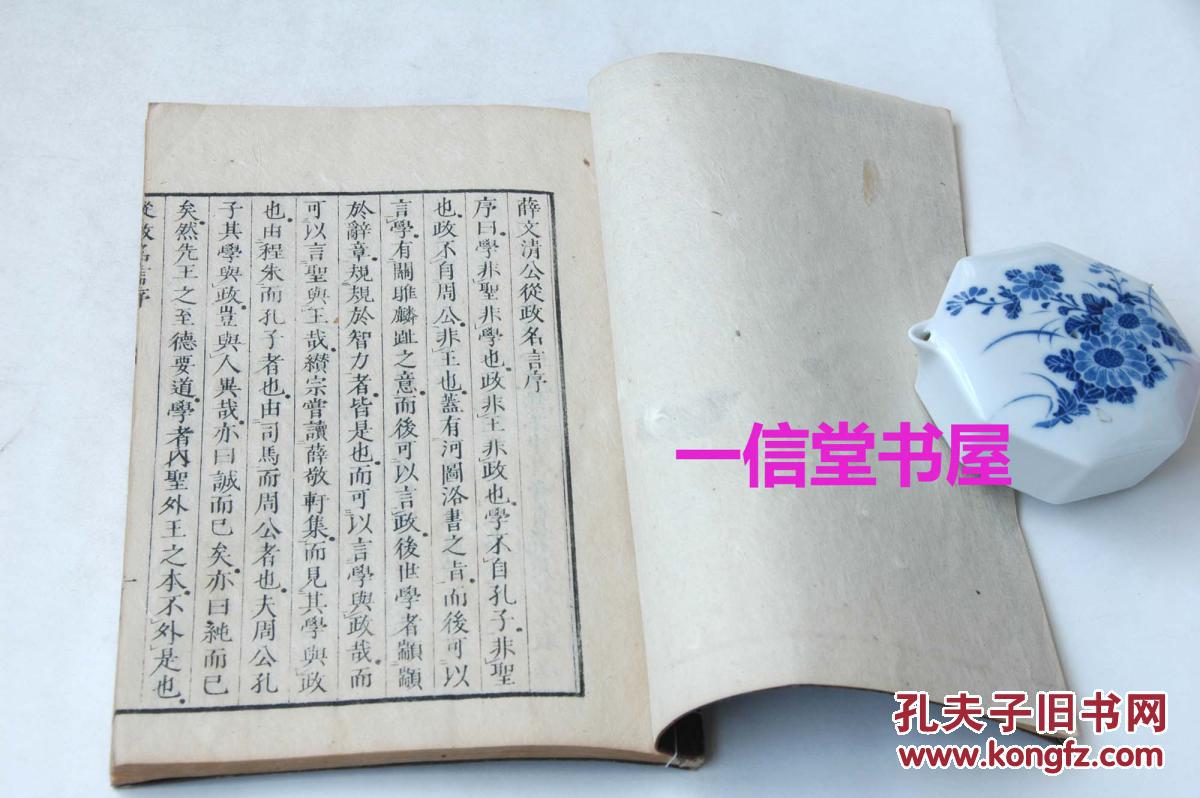 薛文清公從政名言序
序曰學非聖非學也政非王非政也學不自孔子非聖
也政不自周公非王也蓋有河圖洛書之旨而後可以
言學有關雎麟趾之意而後可以言政後世學者顓顓
於辭章規規於智力者皆是也而可以言學與政哉而
可以言聖與王哉纉宗嘗讀薛敬軒集而見其學與政
也由程朱而孔子者也由司馬而周公者也夫周公孔
子其學與政豈與人異哉亦曰誠而已矣亦曰純而已
矣然先王之至德要道學者內聖外王之本不外是也
從政名言序
一
一信堂书屋
孔夫子旧书网
www.kongfz.com